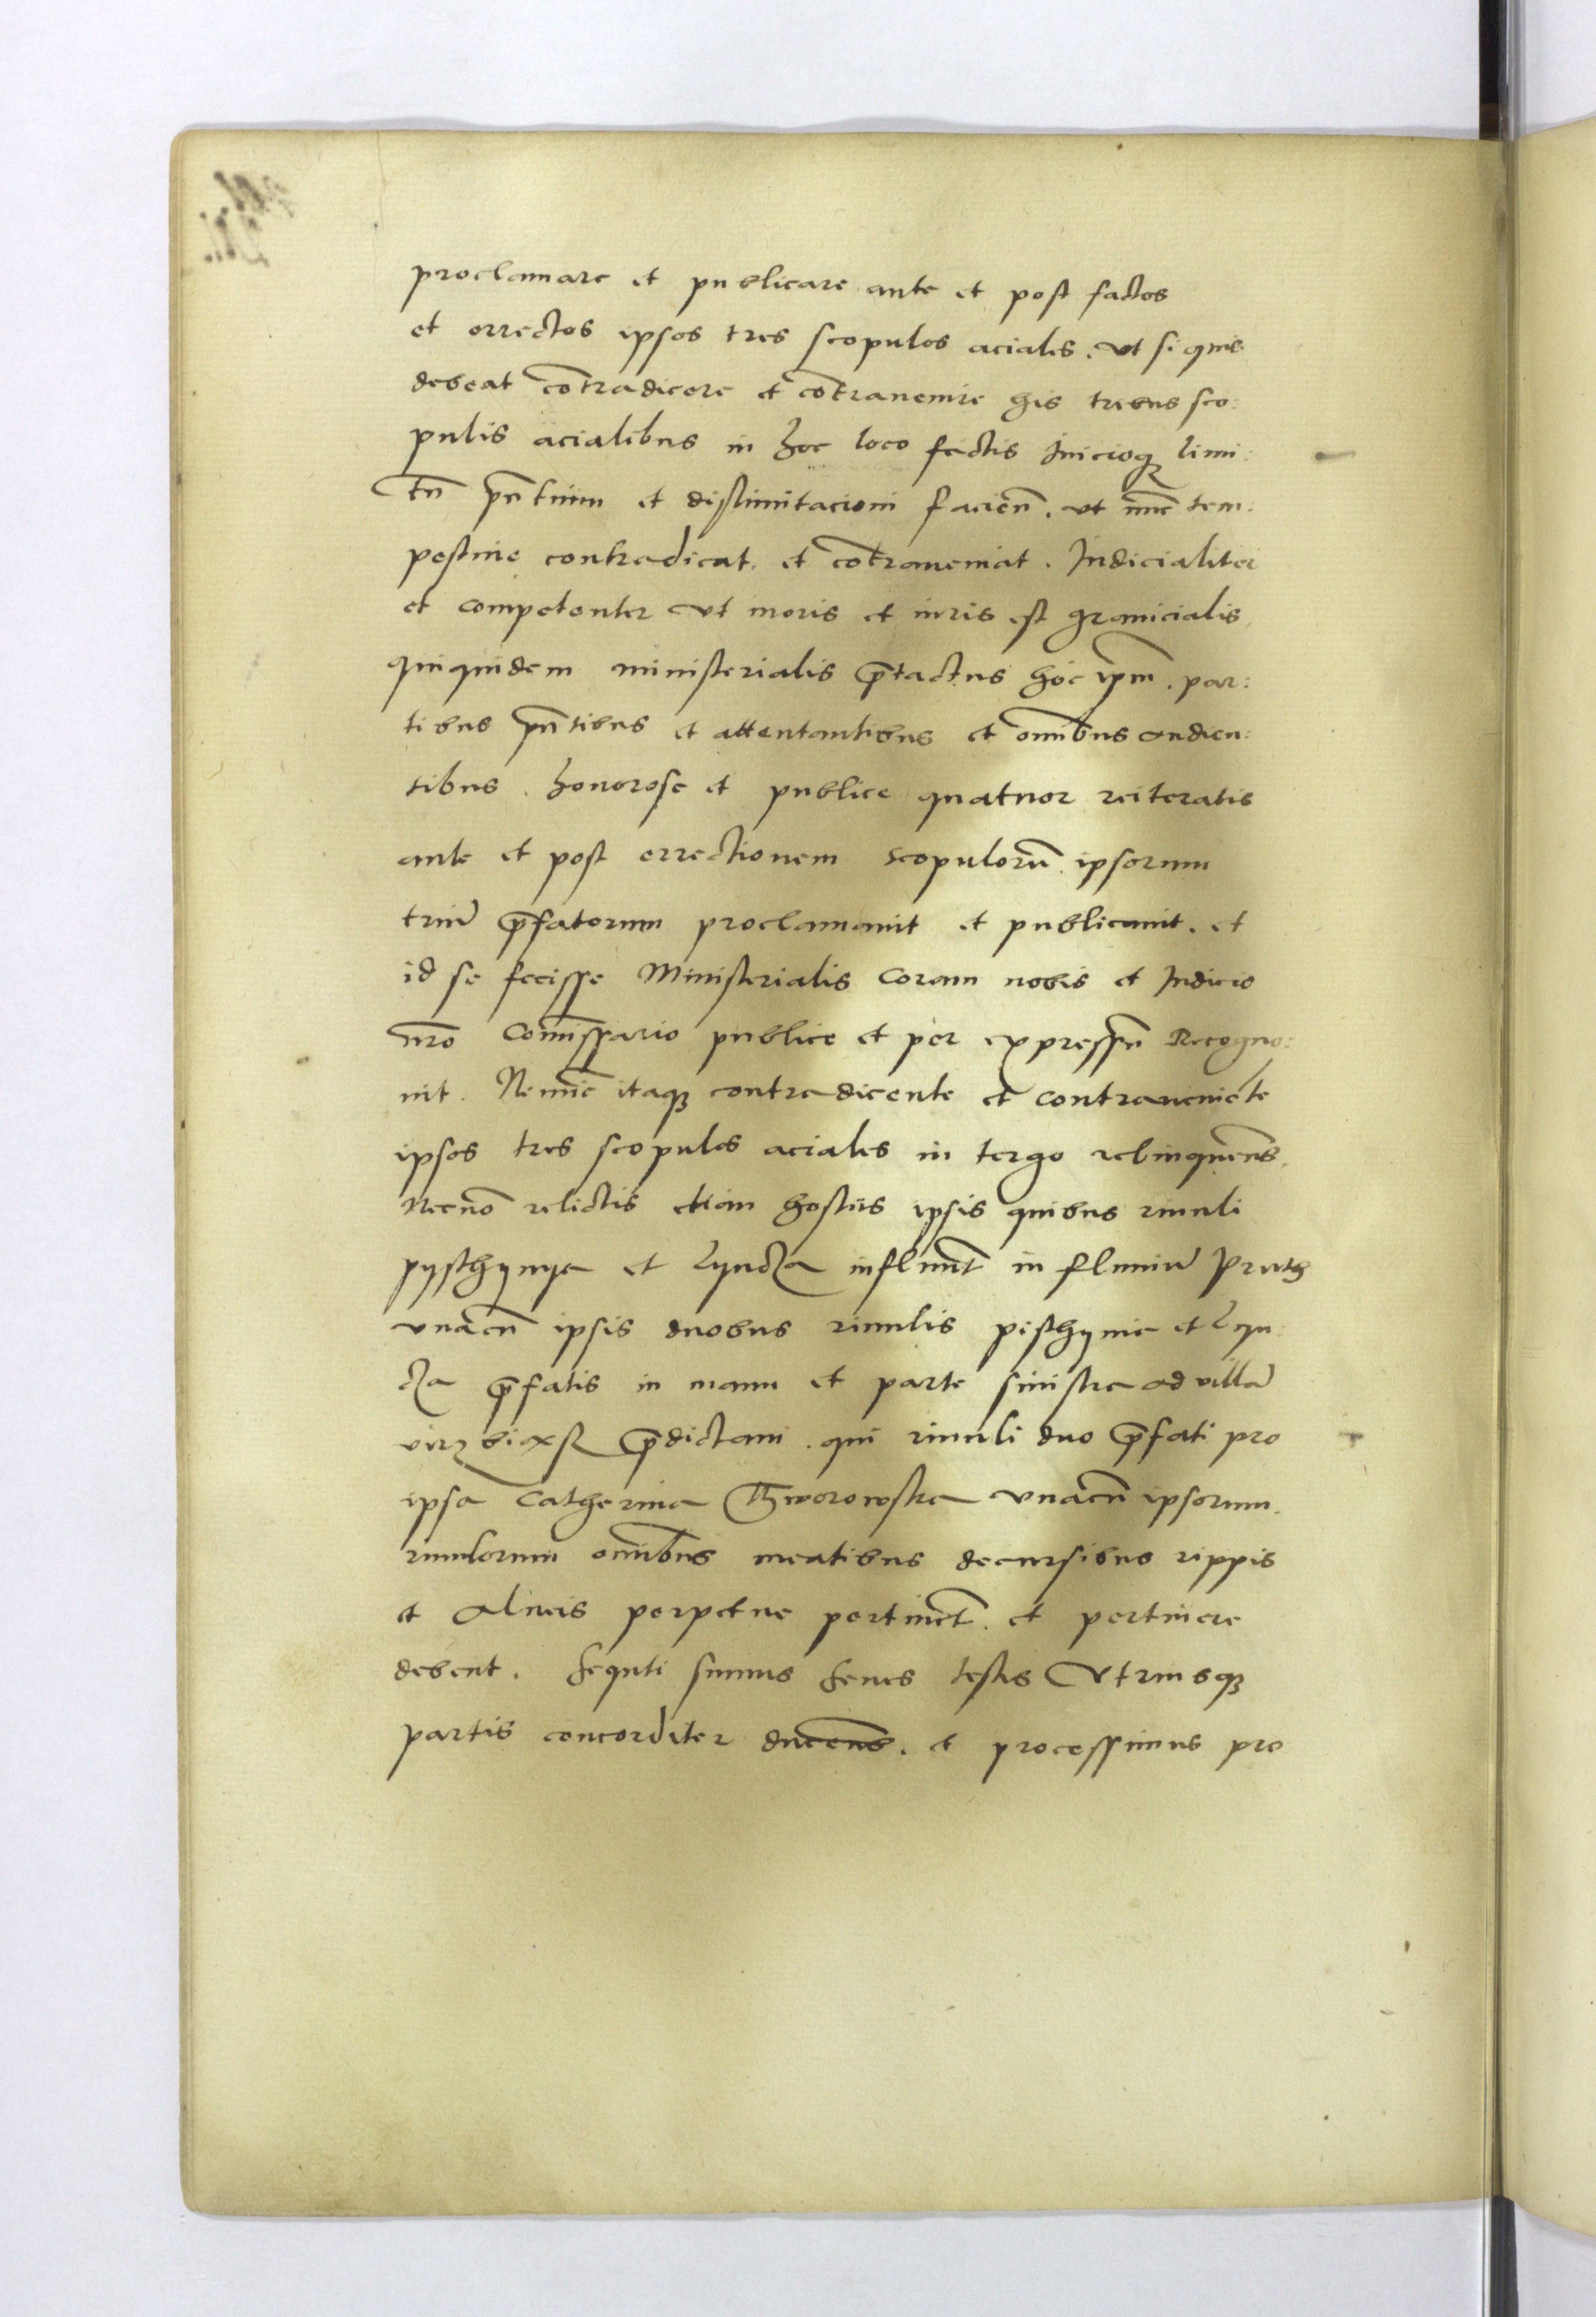 proclamare et publicare ante et post factos
et errectos ipsos tres scopulos aciales. Ut si quis
debeat cōtradicere et cōtravenire his tribus sco:
pulis acialibus in hoc loco factis Inicioq; limi:
tū pn̄tium et distimitacioni facien̄. ut nūc tem:
pestive contradicat. et cōtraveniat. Judicialiter
et competenter ut moris et iuris est granicialis
quiquidem ministerialis p̄tactus hoc ip̄m. par:
tibus pn̄tibus et attentantibus et om̄ibus audien:
tibus. honorose et publice quatuor reiteratis
ante et post errectionem scopulorū ipsorum
triū p̄fatorum proclamavit et publicavit. et
id se fecisse Ministerialis Coram nobis et Judicio
nr̄o Com̄issario publice et per expressū Recogno:
vit. Nemīe itaq; contradicente et contraveniēte
ipsos tres scopulos aciales in tergo relinquen̄s.
Necnō relictis etiam hostiis ipsis quibus rivuli
pysthynya et Lyucza influūt in fluviū Pruth
unacū ipsis duobus rivulis pisthynia et Lyu:
cza p̄fatis in manu et parte sinistra ad villā
p̄dictam. qui rivuli duo p̄fati pro
ipsa Catherina Thworowska unacū ipsorum
rivulorum om̄ibus meatibus decursibus rippis
et Alveis perpetue pertinēt. et pertinere
debent. Sequti sumus senes testes Utriusq;
partis concorditer ducen̄s. et processimus pro